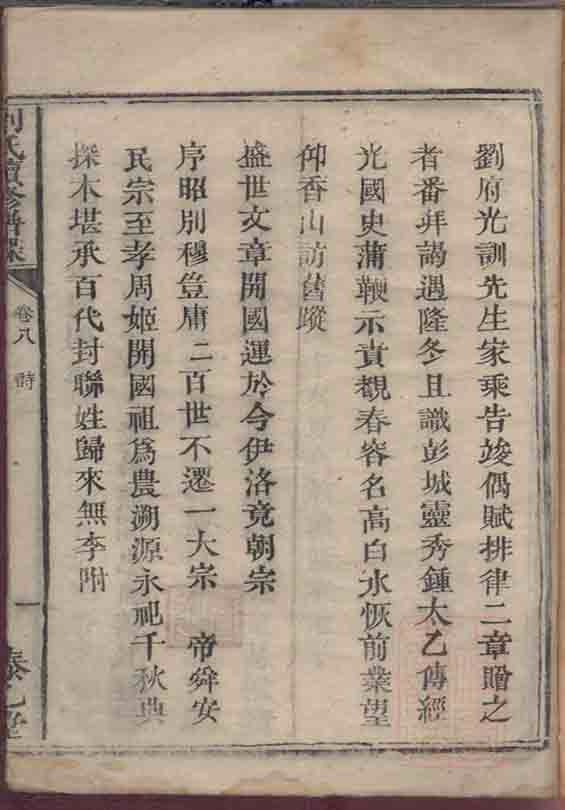 劉府光訓先生家乘告竣偶賦排律二章贈之
者番拜謁遇隆冬且識彭城靈秀鍾太乙傳經
光國史蒲鞭示責覩春容名高白水恢前業望
仰香山訪舊蹤
盛世文章開國運於今伊洛竟朝宗
序昭別穆豈庸二百世不遷一大宗 帝舜安
民宗至孝周姬開國祖爲農溯源永祀千秋典
探木堪承百代封聯姓歸來無李附
劉氏續修譜錄
卷八 詩
一